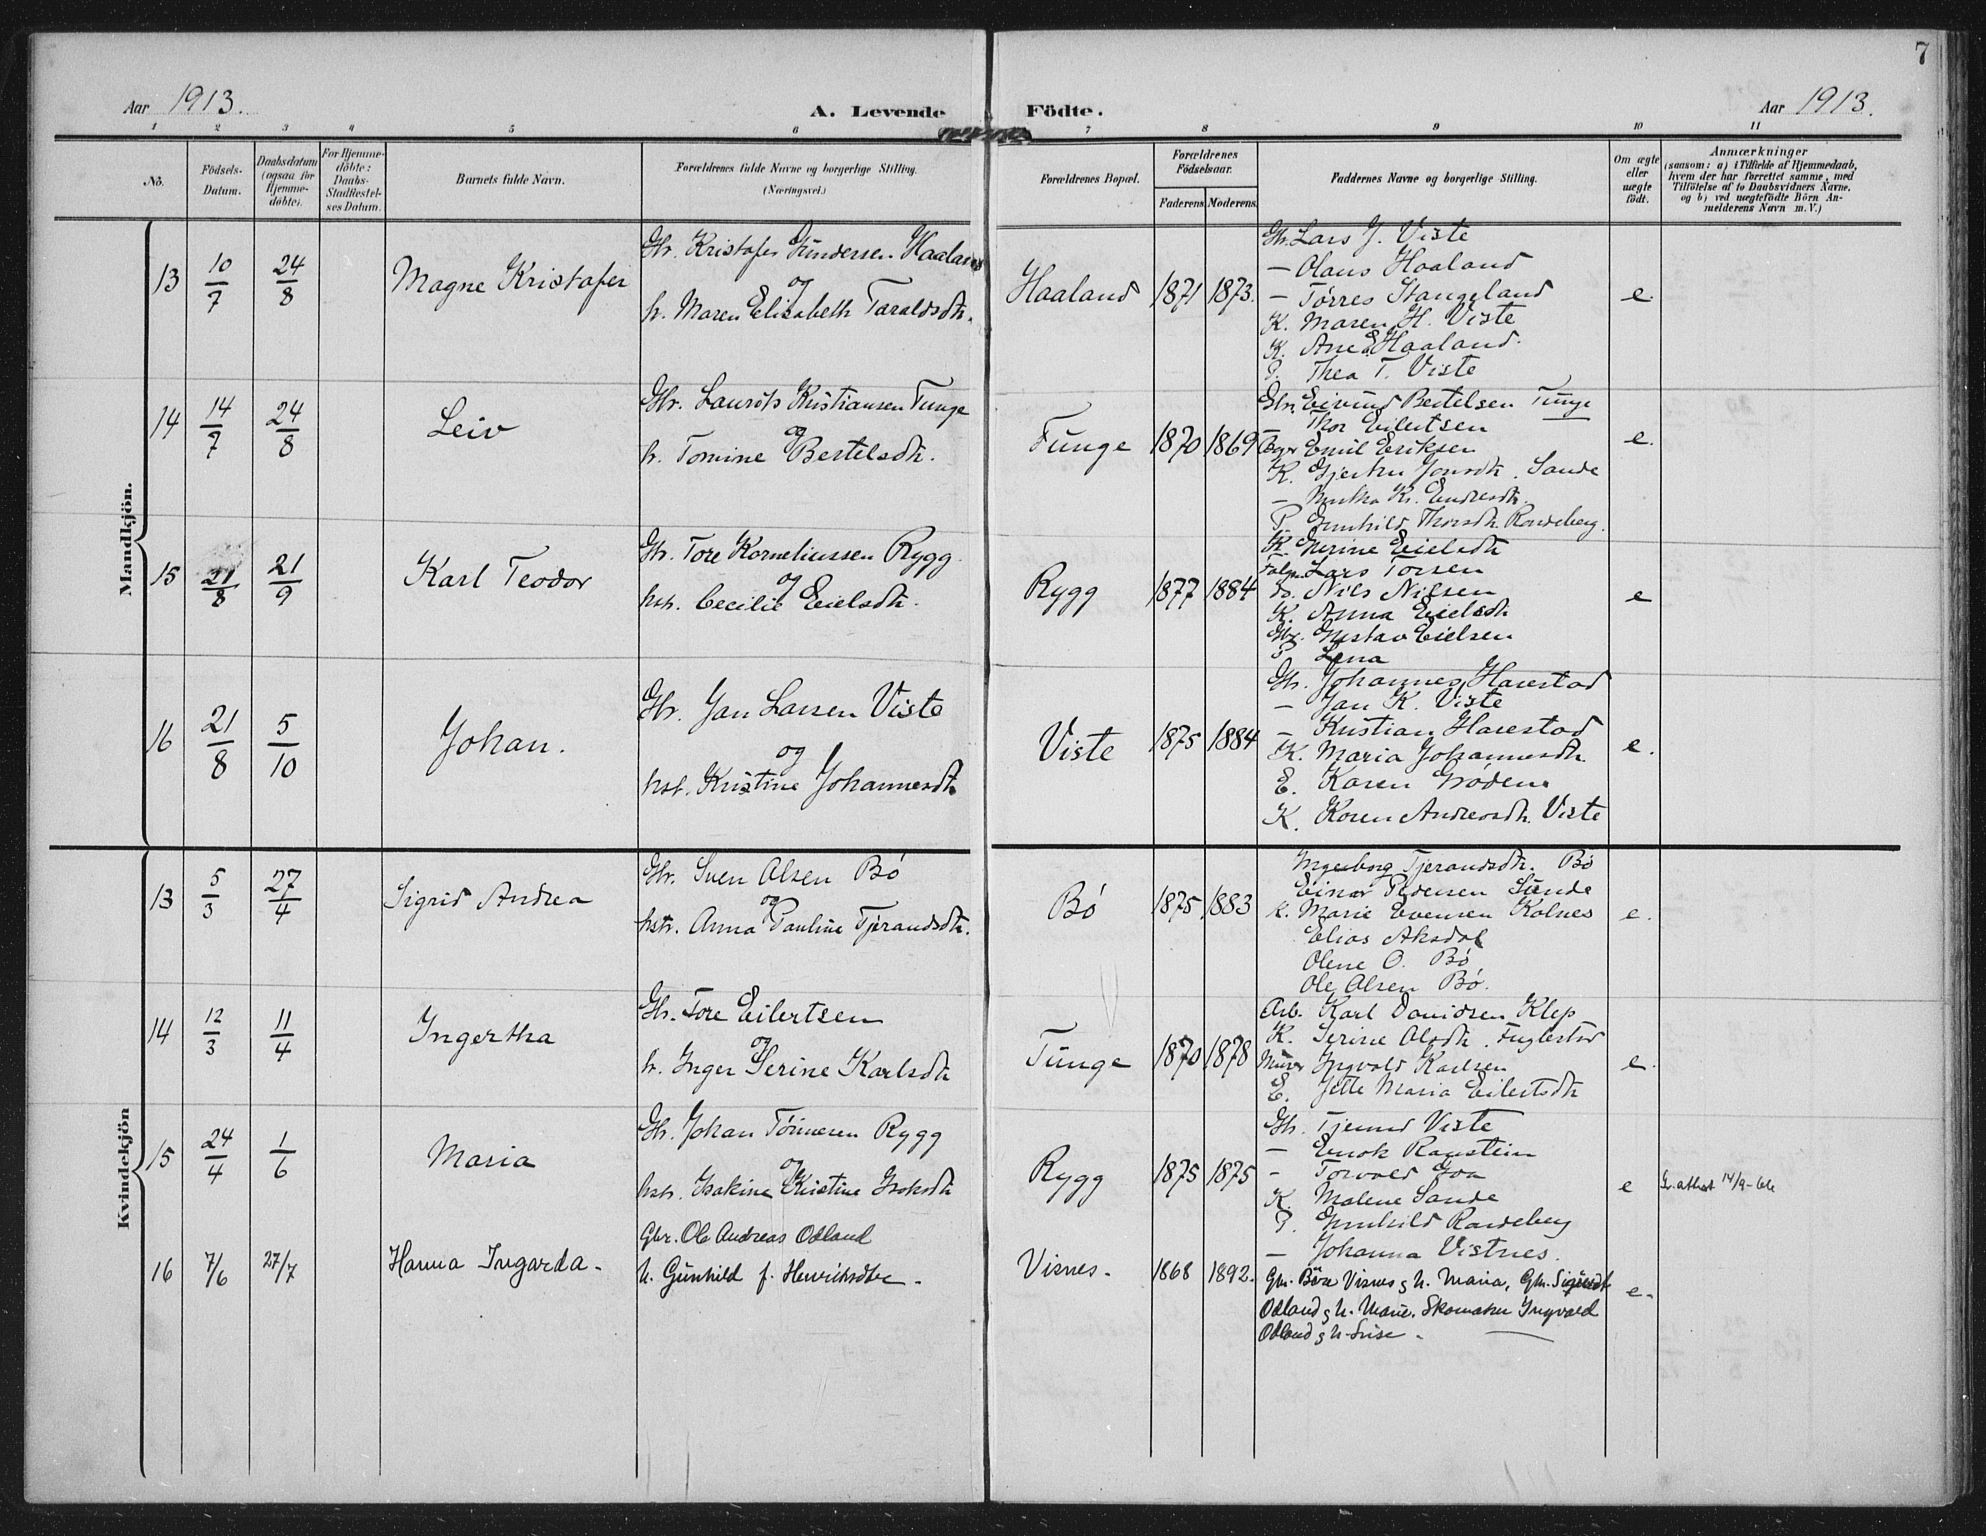 7
Aar 1913.
A. Levende Födte.
Aar 1913.
1 2 3 4 5 6 7 8 9 10 11
No.
Födsels-Datum.
Daabsdatum (ogsaa for Hjemme-döbte).
For Hjemme-döbte: Daabs-Stadfæstel-ses Datum.
Barnets fulde Navn.
Forældrenes fulde Navne og borgerlige Stilling.
(Næringsvei.)
Forældrenes Bopæl.
Forældrenes Födselsaar.
Faderens. Moderens.
Faddernes Navne og borgerlige Stilling.
Om ægte eller uægte födt.
Anmærkninger
(saasom: a) i Tilfælde af Hjemmedaab, hvem der har forrettet samme, med Tilföielse af to Daabsvidners Navne, og b) ved uægtefödte Börn An-melderens Navn m. V.)
Mandkjön.
13 10/7 24/8 Magne Kristofer
Gbr. Kristofer Gundersen Haaland
og
h. Maren Elisabeth Taraldsdtr.
Haaland 1871 1873.
Gbr. Lars J. Viste
— Olaus Haaland
— Tørres Stangeland
K. Maren H. Viste
K. Ane E Haaland.
P. Thea T. Viste
e.
14 14/7 24/8 Leiv
Gbr. Laurits Kristiansen Tunge
og
h. Tomine Bertelsdtr.
Tunge 1870 1869
Gbr. Eivind Bertelsen Tunge
— Thor Eilertsen
Emil Eriksen
K. Gjertru Jonsdtr. Sande
— Kr. Endresdtr.
P. Gunhild Thorsdtr. Randeberg.
e.
15 21/8 21/9 Karl Teodor
Gbr. Tore Korneliussen Rygg
og
hst. Cecilie Eielsdtr.
Rygg 1877 1884
K. Serine Eielsdtr
Lars Torsen
Nils Nilsen
K. Anna Eielsdtr
Gbr. Gustav Eielsen
P Lena
e
16 21/8 5/10 Johan.
Gbr. Jan Larsen Viste
og
hst. Kristine Johannesdtr.
Viste 1875 1884
Gbr. Johannes Harestad
— Jan K. Viste
— Kristian Harestad
K. Maria Johannesdtr.
E. Karen Grødem
K. Karen Andreasdtr. Viste
e.
Kvindekjön
13 5/3 27/4 Sigrid Andrea
Gbr. Sven Olsen Bö
og
hstr. Anna Pauline Tjerandsdtr.
Bö 1875 1883
Ingeborg Tjerandsdtr. Bö
Einar Pedersen Sunde
K. Marie Evensen Kolnes
Elias Aksdal
Olene O. Bö
Ole Olsen Bö.
e.
14 12/3 11/4 Ingertha
Gbr. Tore Eilertsen
og
h. Inger Serine Karlsdtr
Tunge 1870 1878
Arb. Karl Danidsen Klep
K. Serine Olsdtr. Fuglestad
Murer Ingvald Karlsen
E. Jette Maria Eilertsdtr
e.
15 24/4 1/6 Maria
Gbr. Johan Tönnesen Rygg
og
hstr. Isakine Kristine Isaksdtr
Rygg 1875 1875
Gbr. Tjerand Viste
— Enok Raustein
— Torvald Goa
K. Malene Sande
P. Gunhild Randeberg
— Johanna Vistnes.
e
attest 14/9-66
16 7/6 27/7 Hanna Ingarda.
Gbr. Ole Andreas Odland
h. Gunhild f. Henriksdtr.
Visnes. 1868 1892.
Gbr. Böre Visnes g h. Maria, Gbr. Sigurd
Odland g h. Marie. Skomaker Ingvald
Odland g h.
e.